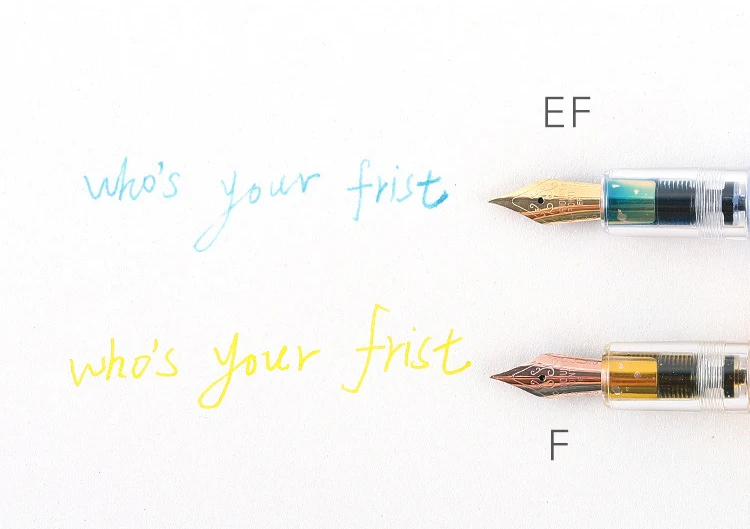 EF
who's your frist
who's your frist
F